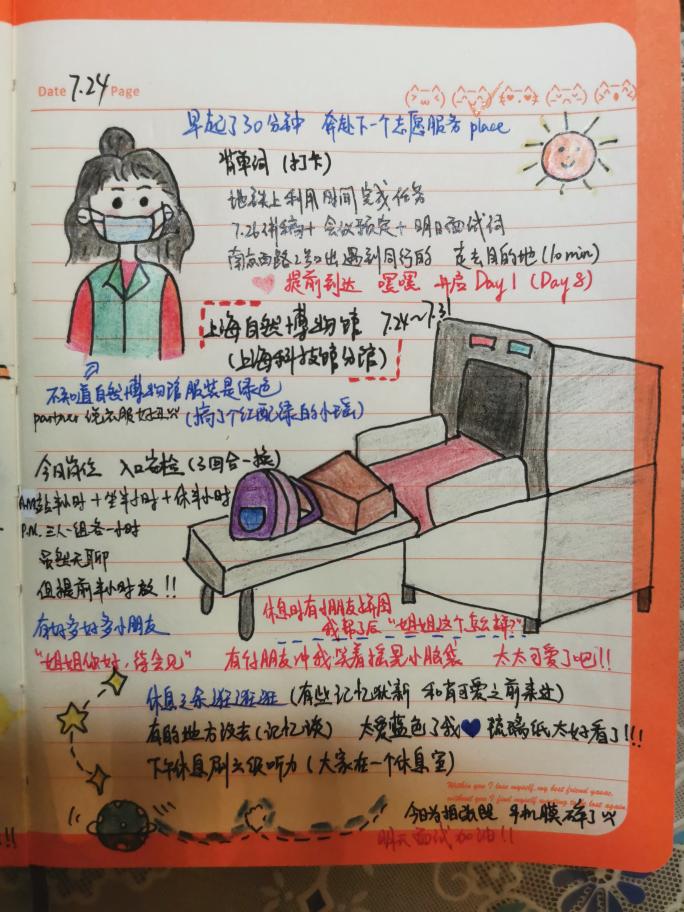 Date 7.24 Page
早起了30分钟 奔赴下一个志愿服务 place
背单词 (打卡)
地铁上利用时间完成任务
7.26讲稿+会议预定+明日面试词
南京西路2号口出遇到同行的 走去目的地(10min)
提前到达 嘿嘿 开启Day1 (Day8)
上海自然博物馆 7.24~7.31
(上海科技馆分馆)
不知道自然博物馆服装是绿色
partner说衣服好丑 (搞了个红配绿的小瑶)
今日岗位 入口安检 (3回合一换)
A.M.站半小时+坐半小时+休半小时
P.M. 三人一组各一小时
虽然无聊
但提前半小时放!!
有好多好多小朋友
休息时有小朋友拼图
我帮了后"姐姐这个怎么拼?"
"姐姐你好,待会见" 有位小朋友冲我笑着摇晃小脑袋 太太可爱了吧!!
休息之余逛了逛逛 (有些记忆犹新 和有可爱之前来过)
有的地方没去(记忆淡) 太爱蓝色了我 琉璃纸太好看了!!!
下午休息刷六级听力 (大家在一个休息室)
Within you I lose myself, my best friend
without you I find myself lost again
手机膜碎了
明天面试加油!!